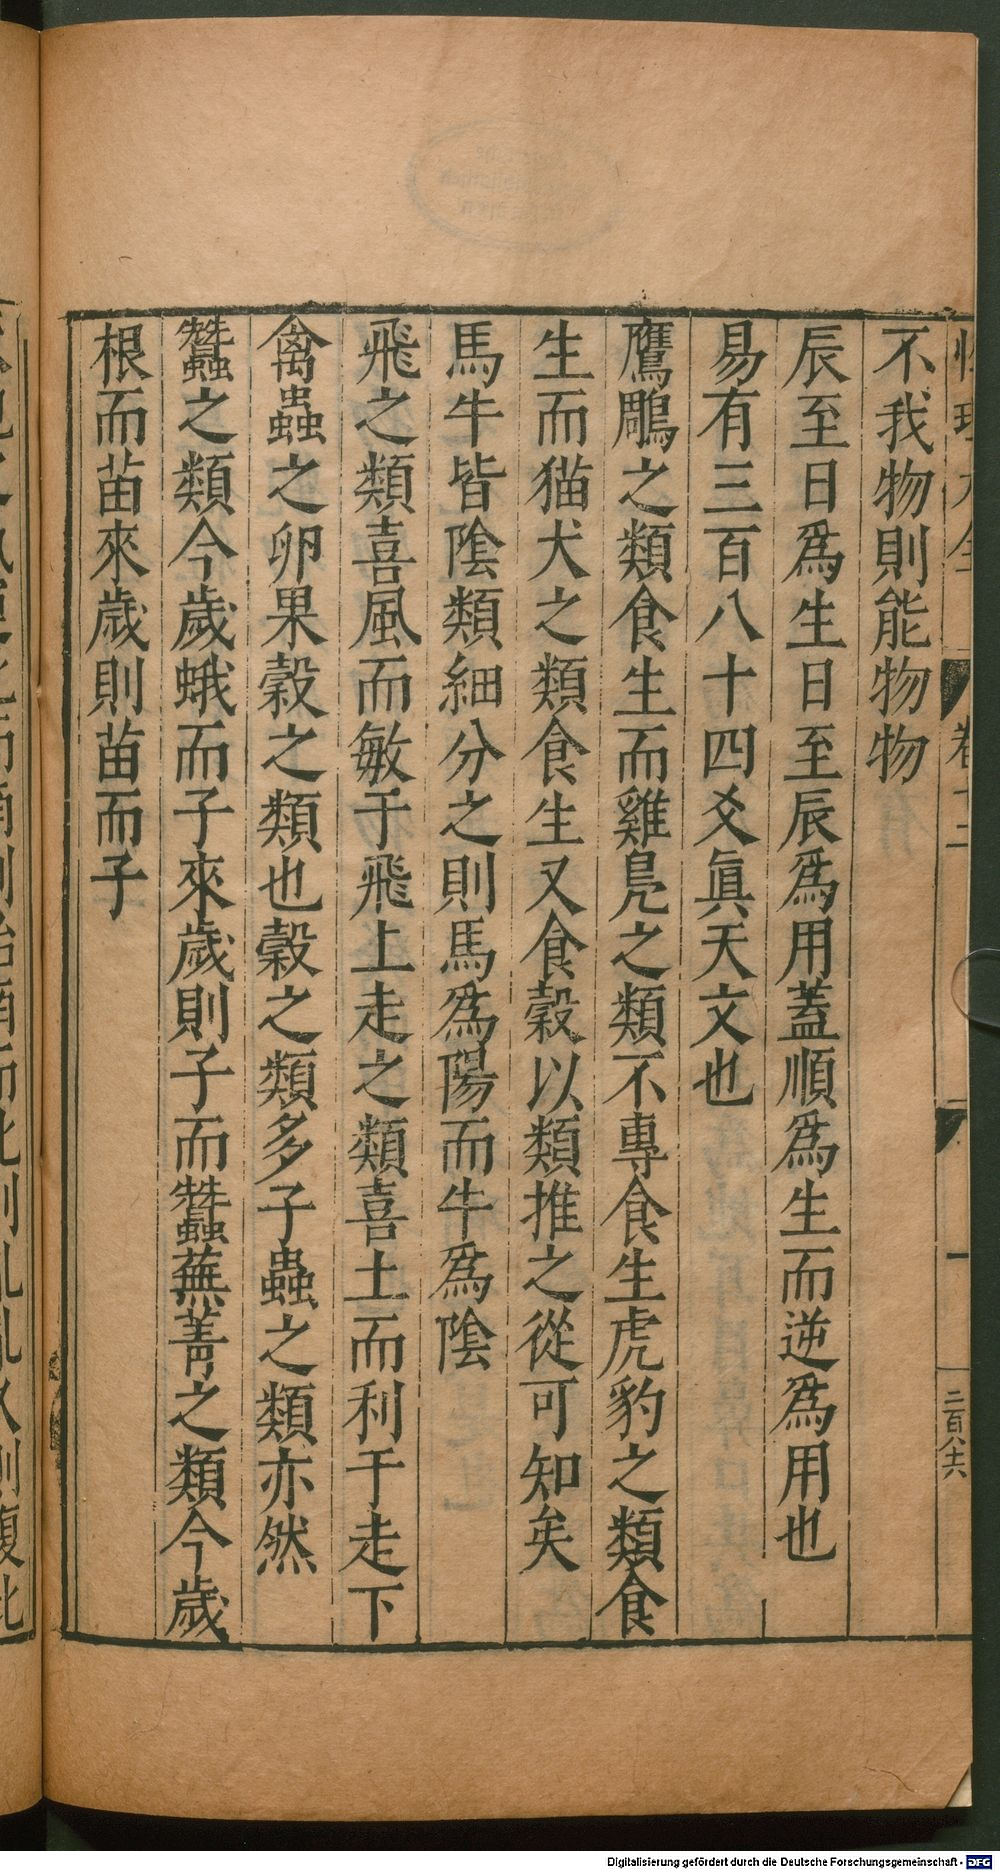 性理大全
卷十二
二百八十六
不我物則能物物
辰至日爲生日至辰爲用蓋順爲生而逆爲用也
易有三百八十四爻眞天文也
鷹鵰之類食生而雞鳧之類不專食生虎豹之類食
生而猫犬之類食生又食穀以類推之從可知矣
馬牛皆陰類細分之則馬爲陽而牛爲陰
飛之類喜風而敏于飛上走之類喜土而利于走下
禽蟲之卵果穀之類也穀之類多子蟲之類亦然
蠶之類今歲蛾而子來歲則子而蠶蕪菁之類今歲
根而苗來歲則苗而子
Digitalisierung gefördert durch die Deutsche Forschungsgemeinschaft - DFG